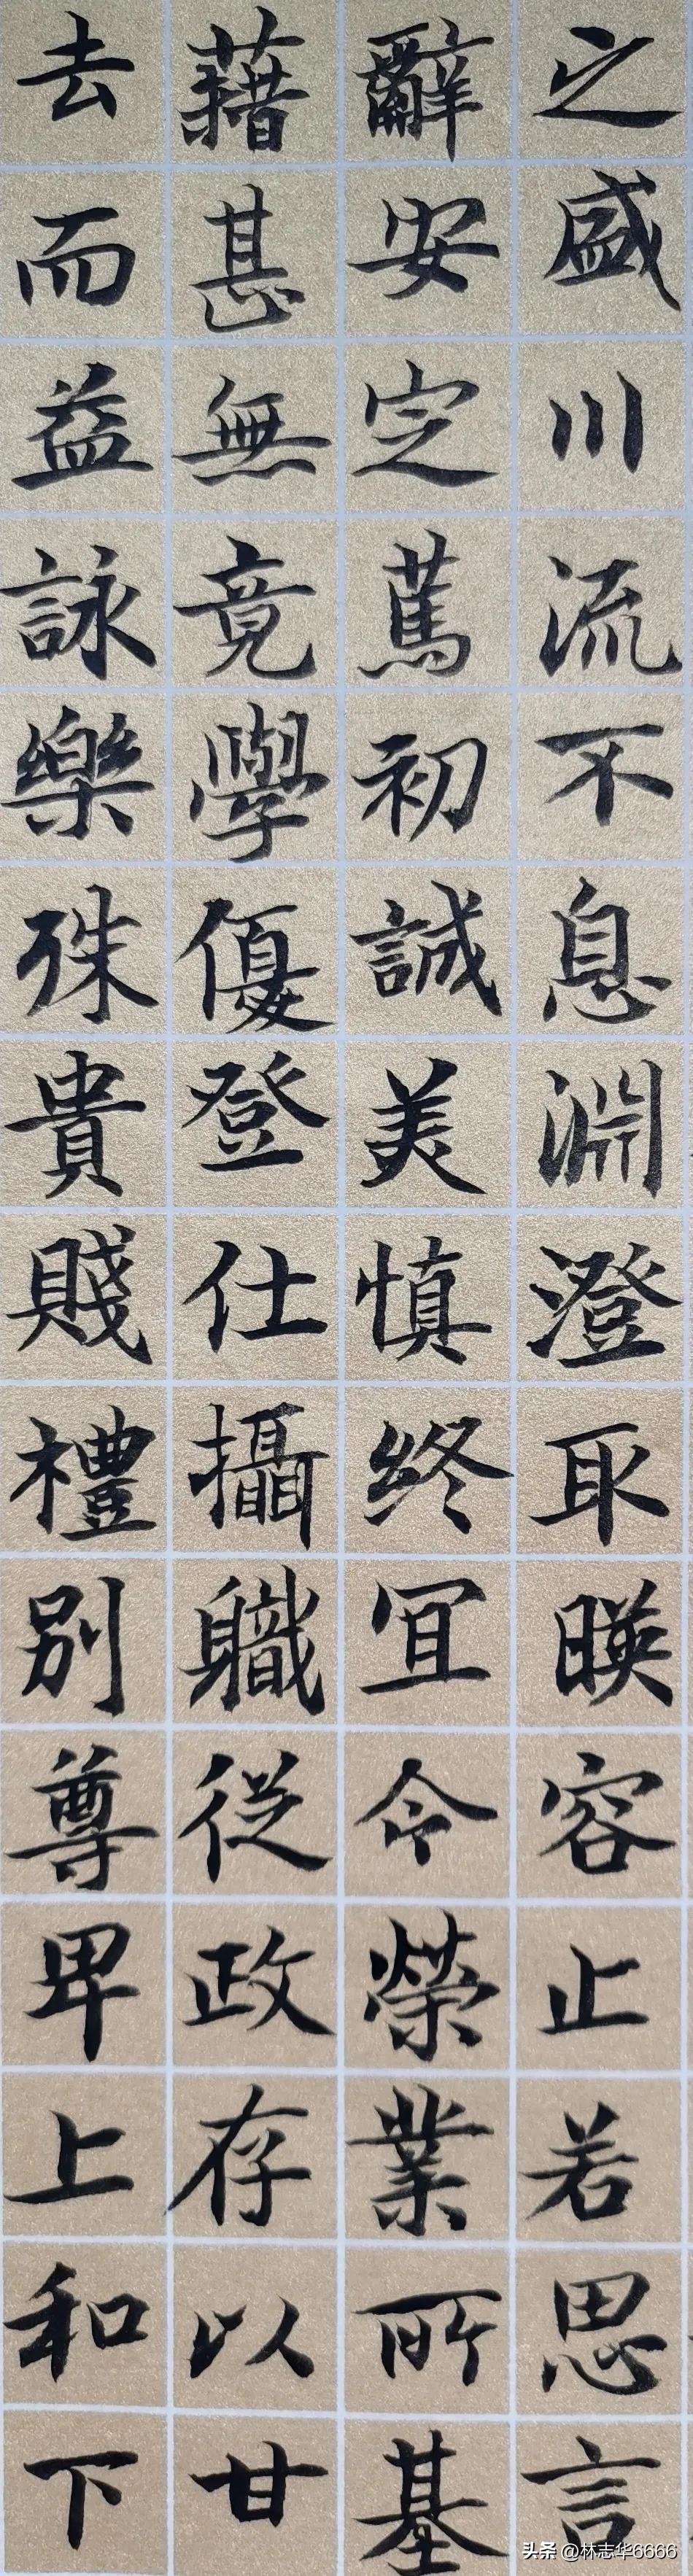 之盛川流不息淵澄取暎容止若思言
辭安定篤初誠美慎終宜令榮業所基
藉甚無竟學優登仕攝職從政存以甘
去而益詠樂殊貴賤禮別尊卑上和下
头条 @林志华6666